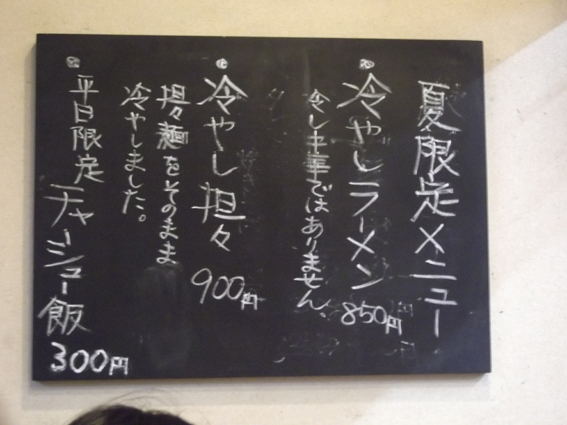 夏限定メニュー
冷やしラーメン 850円
冷し中華ではありません
冷やし担々 900円
担々麺をそのまま
冷やしました。
平日限定 チャーシュー飯 300円